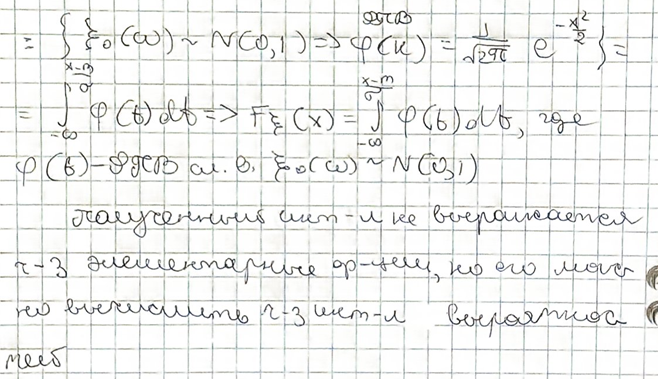 ФПВ
= { ξ₀(ω) ~ N(0,1) => φ(x) = 1/√2π e^(-x²/2) } =
= ∫_{-∞}^{(x-m)/σ} φ(t)dt => Fξ(x) = ∫_{-∞}^{(x-m)/σ} φ(t)dt, где
φ(t) - ФПВ сл. в. ξ₀(ω) ~ N(0,1)
Полученный инт-л не выражается
ч-з элементарные ф-ции, но его мож
но вычислить ч-з инт-л вероятнос
тей